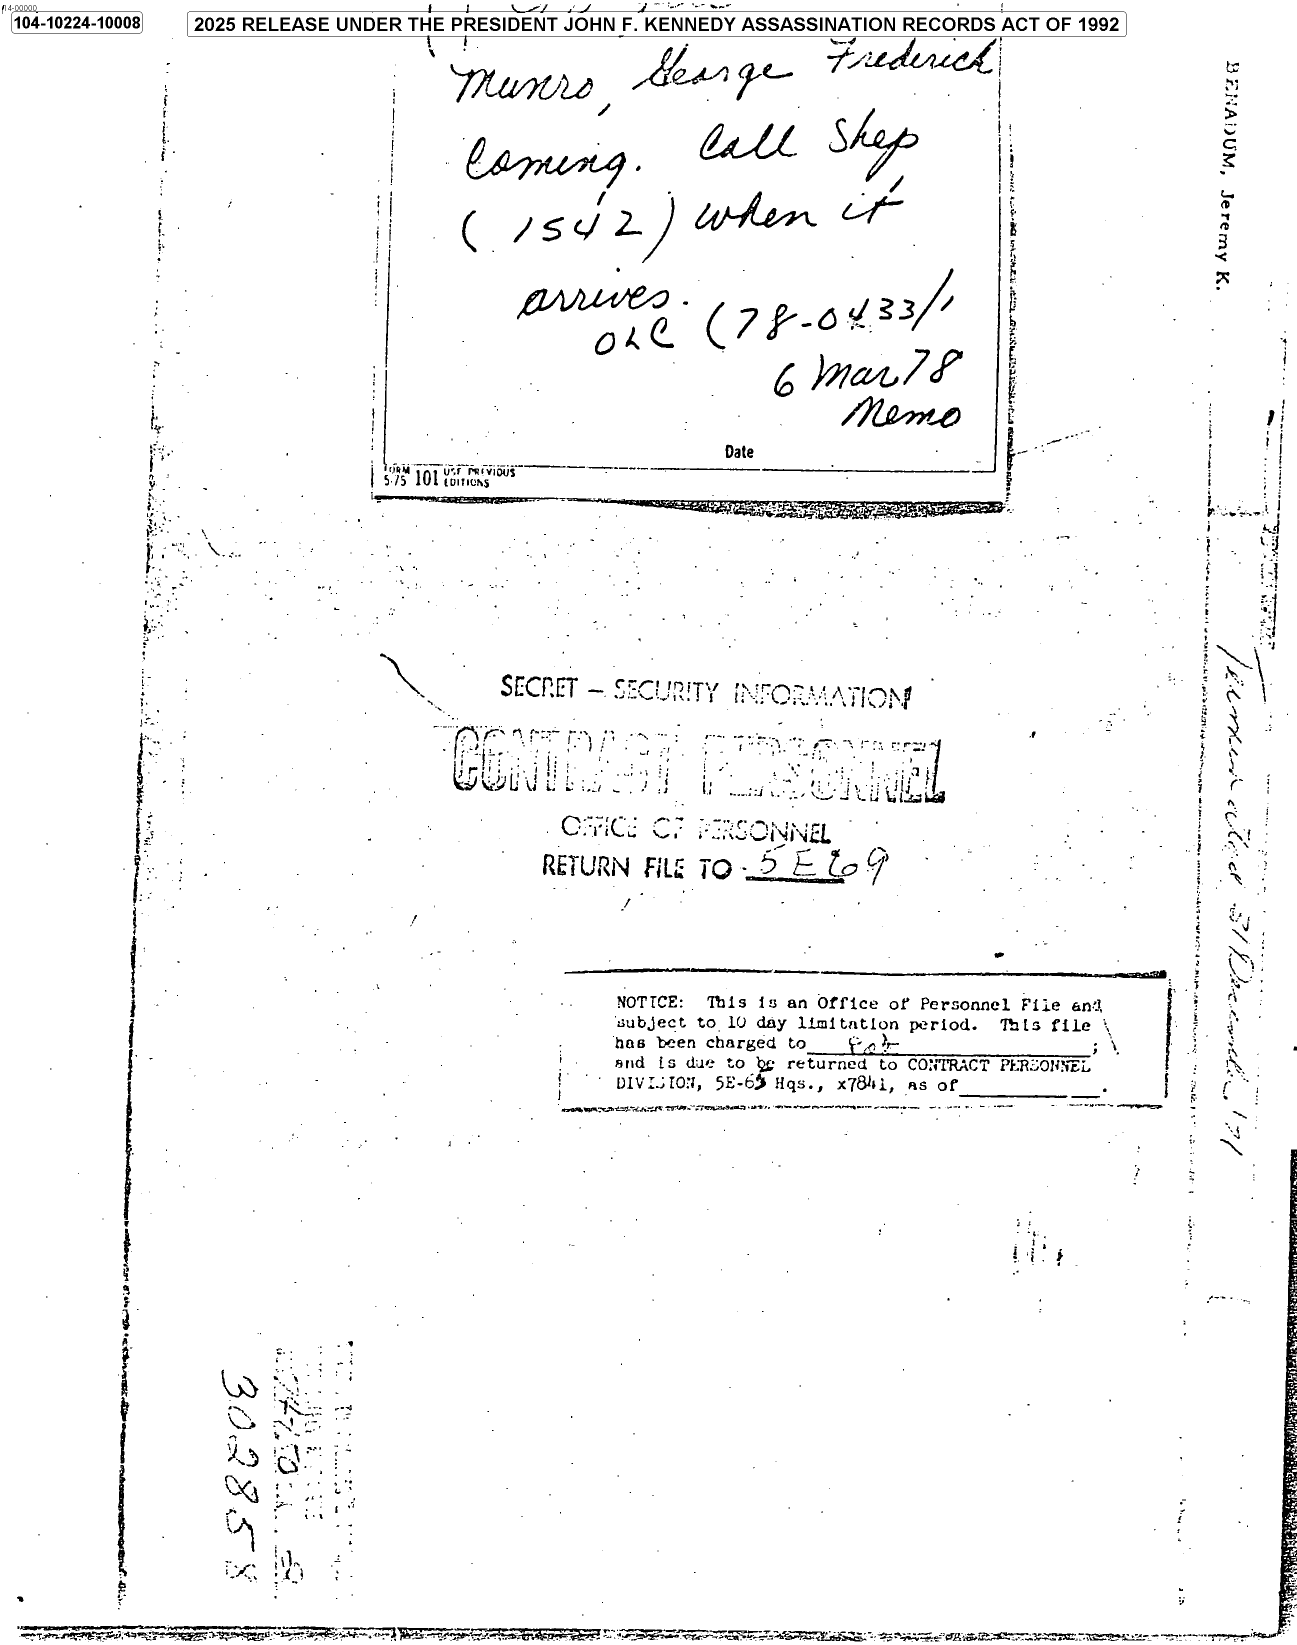 14-00000
104-10224-10008
2025 RELEASE UNDER THE PRESIDENT JOHN F. KENNEDY ASSASSINATION RECORDS ACT OF 1992
Munro, George Frederick
Coming. Call Shep
(1542) when it
arrives.
OLC (78-0433/1
6 Mar 78
Memo
Date
FORM 5-75 101 USE PREVIOUS EDITIONS
BENADUM, Jeremy K.
SECRET – SECURITY INFORMATION
CONTRACT PERSONNEL
OFFICE OF PERSONNEL
RETURN FILE TO 5 E 69
NOTICE: This is an Office of Personnel File and
subject to 10 day limitation period. This file
has been charged to ;
and is due to be returned to CONTRACT PERSONNEL
DIVISION, 5E-69 Hqs., x7841, as of .
Terminated 31 December '71
302858